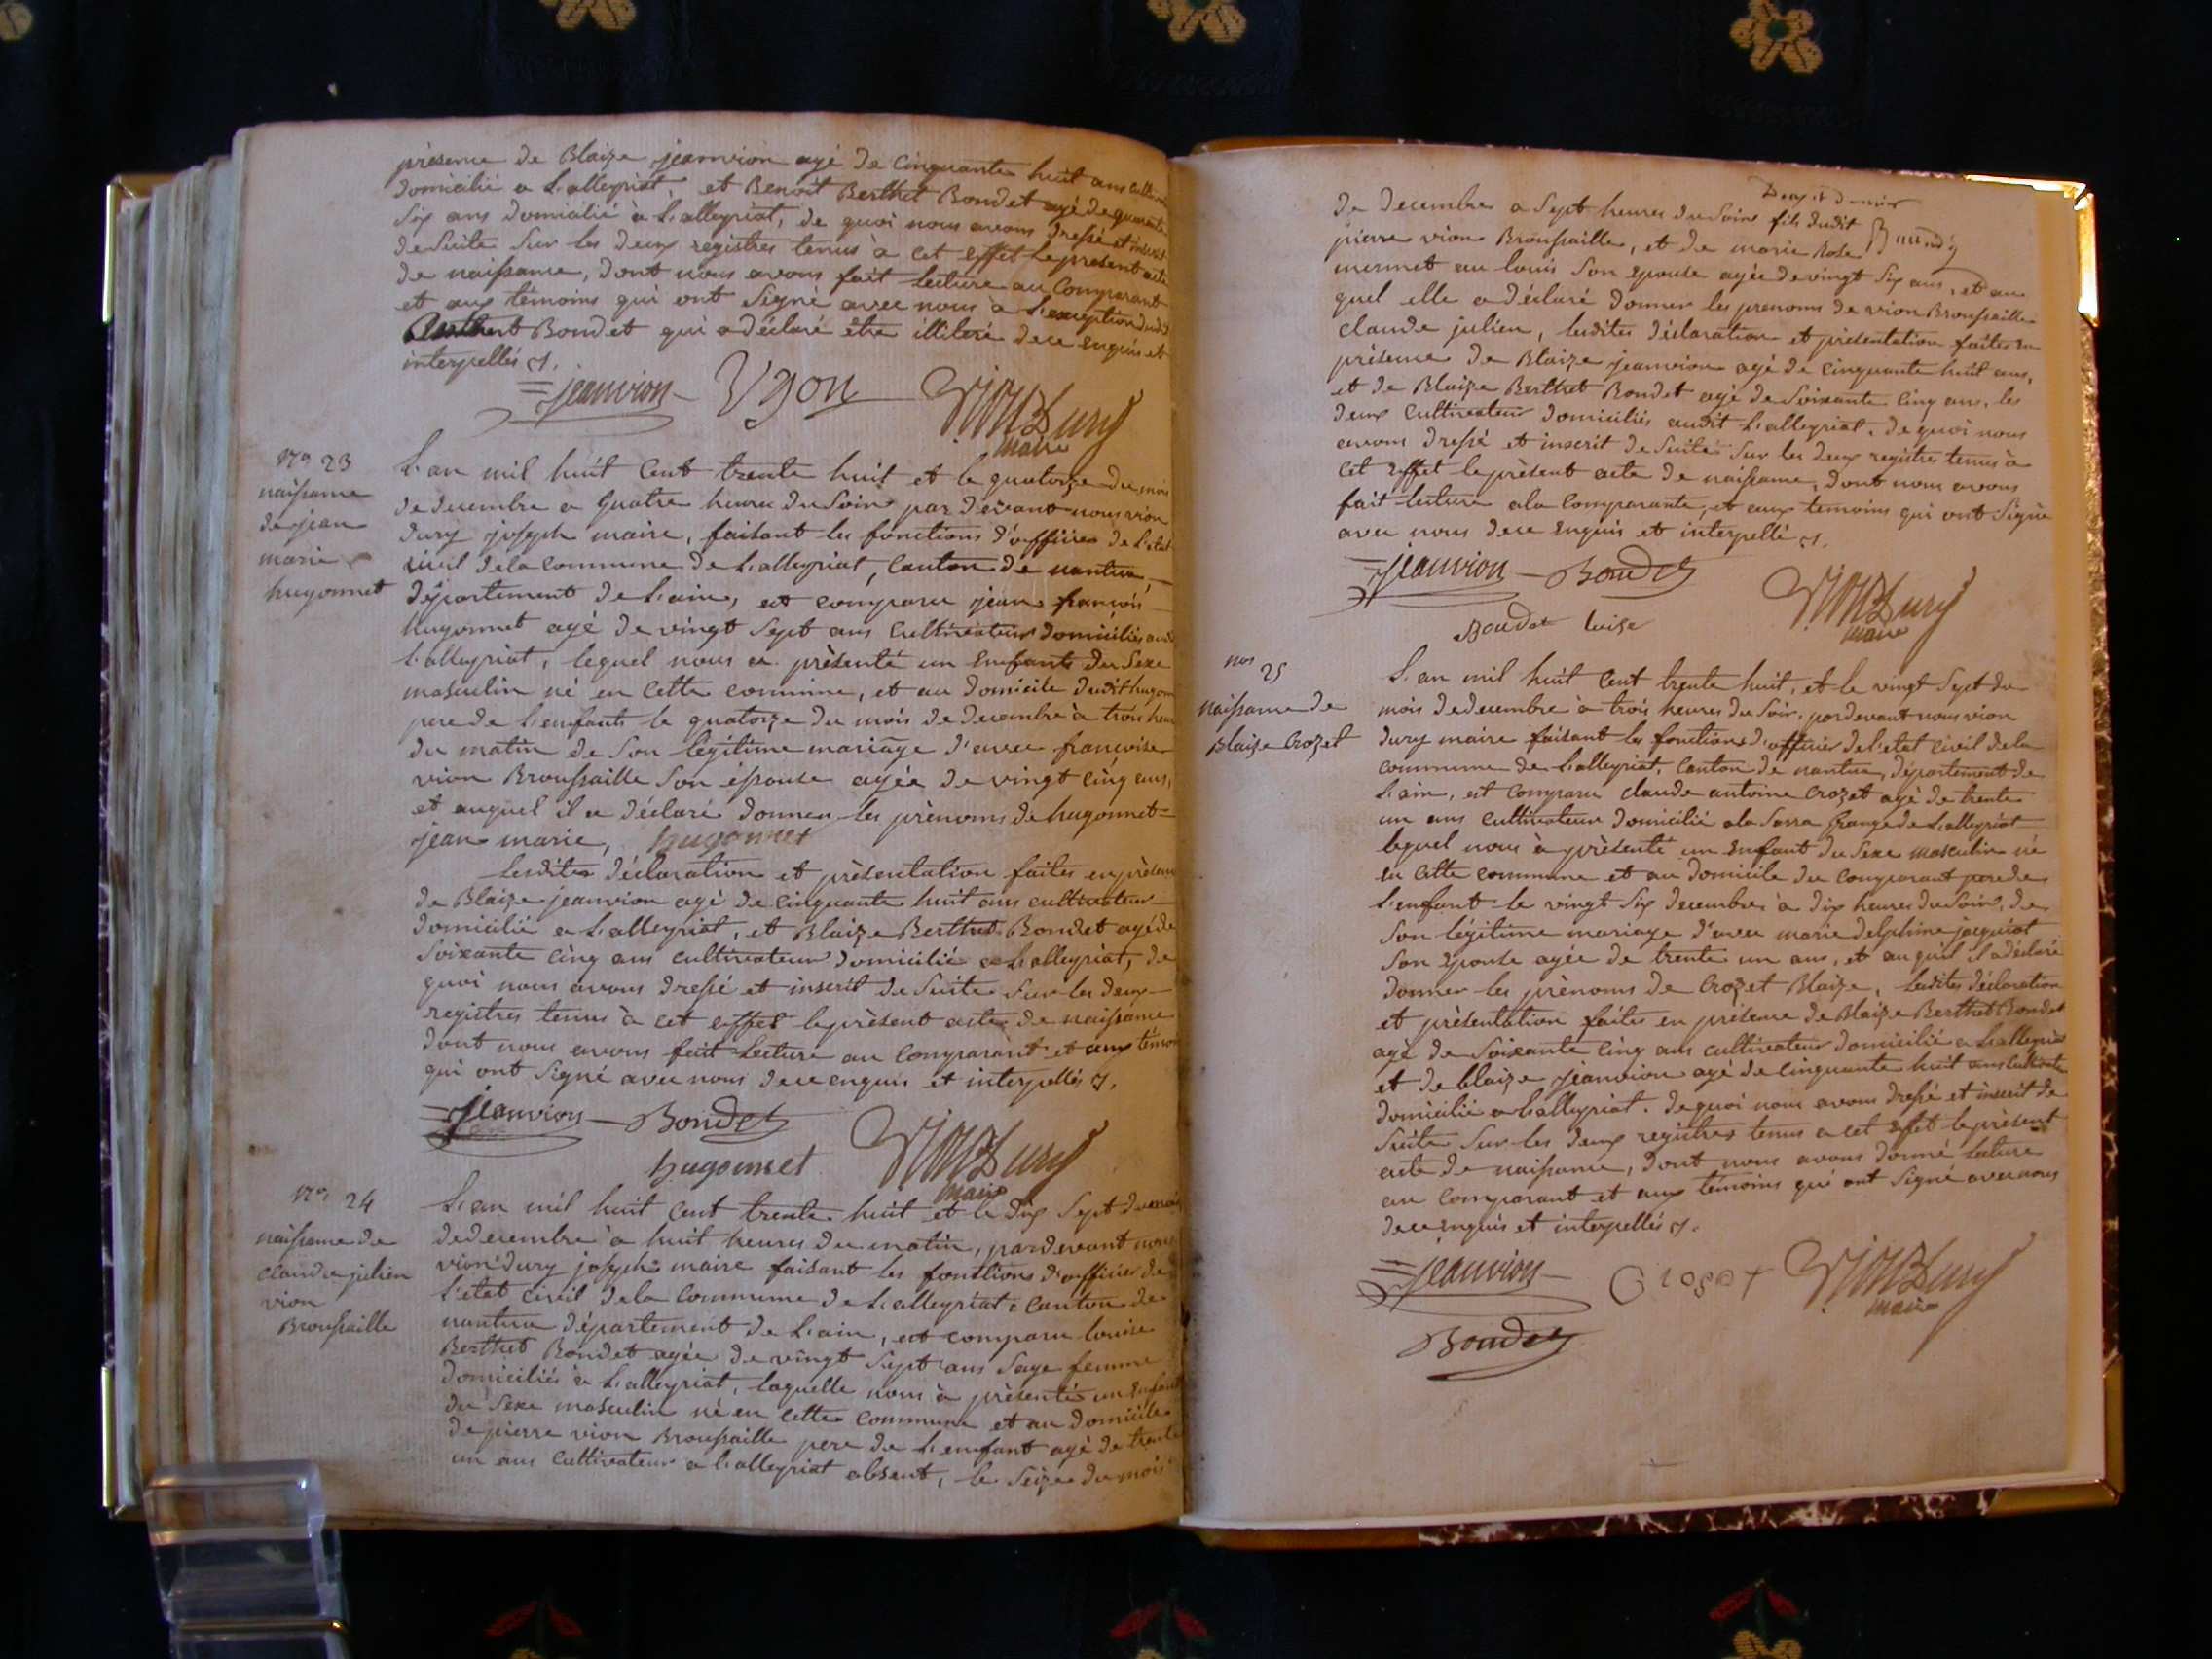 présence de Blaize jeanvion agé de Cinquante huit ans
domicilié a L'alleyriat, et Benoit Berthet Bondet agé de quarante
Six ans domicilié à L'alleyriat, de quoi nous avons dressé et inscrit
de Suite Sur les deux registres tenus à cet effet le présent acte
de naissance, dont nous avons fait lecture au Comparant
et aux témoins qui ont Signé avec nous à L'exception dudit
Berthet Bondet qui a déclaré être illiteré de ce Enquis et
interpellés
jeanvion Ygon Vion Dury
maire
N° 23
naissance
de jean
marie
hugonnet
L'an mil huit Cent trente huit et le quatorze du mois
de decembre a Quatre heures du Soir par devant nous vion
dury joseph maire, faisant les fonctions d'officier de L'état
civil dela Commune de L'alleyriat, Canton de nantua
département de L'ain, est comparu jean françois
hugonnet agé de vingt Sept ans Cultivateur domicilié audit
L'alleyriat, lequel nous a présenté un Enfant du Sexe
masculin né en Cette commune, et au domicile dudit hugonnet
pere de L'enfant le quatorze du mois de decembre à trois heures
du matin de Son légitime mariage d'avec françoise
vion Broussaille Son épouse agée de vingt cinq ans,
et auquel il a déclaré donner les prénoms de hugonnet
jean marie, hugonnet
Lesdites déclaration et présentation faites en présence
de Blaize jeanvion agé de cinquante huit ans cultivateur
domicilié a L'alleyriat, et Blaize Berthet Bondet agé de
Soixante cinq ans cultivateur domicilié a L'alleyriat, de
quoi nous avons dressé et inscrit de Suite Sur les deux
registres tenus à cet effet le présent acte de naissance
dont nous avons fait Lecture au Comparant et aux témoins
qui ont Signé avec nous de ce enquis et interpellés
jeanvion Bondet
hugonnet Vion Dury
maire
N° 24
naissance de
Claude julien
vion
Broussaille
L'an mil huit cent trente huit et le dix Sept du mois
de decembre à huit heures du matin, pardevant nous
vion dury joseph maire faisant les fonctions d'officier de
L'état civil dela Commune de L'alleyriat Canton de
nantua département de L'ain, est comparu louise
Berthet Bondet agée de vingt Sept ans Sage femme
domiciliée à L'alleyriat, laquelle nous à présenté un Enfant
du Sexe masculin né en Cette Commune et au domicile
de pierre vion Broussaille pere de L'enfant agé de trente
un ans Cultivateur a L'alleyriat absent, le Seize du mois
de decembre a Sept heures du Soir fils dudit
pierre vion Broussaille, et de marie Rose
mermet au louis Son Epouse agée de vingt Six ans, et au
quel elle a déclaré donner les prenoms de vion Broussaille
Claude julien, lesdites déclaration et présentation faites en
présence de Blaize jeanvion agé de cinquante huit ans,
et de Blaize Berthet Bondet agé de Soixante Cinq ans, les
deux Cultivateur domiciliés audit L'alleyriat. de quoi nous
avons dressé et inscrit de Suite Sur les deux registres tenus à
cet Effet le présent acte de naissance, dont nous avons
fait lecture ala Comparante, et aux temoins qui ont Signé
avec nous de ce Enquis et interpellé
jeanvion Bondet
Bondet luise Vion Dury
maire
nos 25
Naissance de
Blaize Crozet
L'an mil huit Cent trente huit, et le vingt Sept du
mois de decembre à trois heures du Soir. pardevant nous vion
dury maire faisant les fonctions d'officier de l'etat civil dela
commune de L'alleyriat, Canton de nantua, département de
L'ain, est Comparu claude antoine Crozet agé de trente
un ans Cultivateur domicilié ala Serra Grange de L'alleyriat
lequel nous à présenté un Enfant du Sexe masculin né
en Cette commune et au domicile du Comparant pere de
L'enfant le vingt Six decembre à dix heures du Soir, de
Son légitime mariage d'avec marie delphine jacquiot
Son Epouse agée de trente un ans, et au quel il a déclaré
donner les prénoms de Crozet Blaize, lesdites déclaration
et présentation faites en présence de Blaize Berthet Bondet
agé de Soixante Cinq ans cultivateur domicilié a L'alleyriat
et de blaize jeanvion agé de Cinquante huit ans Cultivateur
domicilié a L'alleyriat. de quoi nous avons dressé et inscrit de
Suite Sur les deux registres tenus a cet Effet le présent
acte de naissance, dont nous avons donné lecture
au Comparant et aux témoins qui ont Signé avec nous
de ce Enquis et interpellés
jeanvion Crozet Vion Dury
maire
Bondet